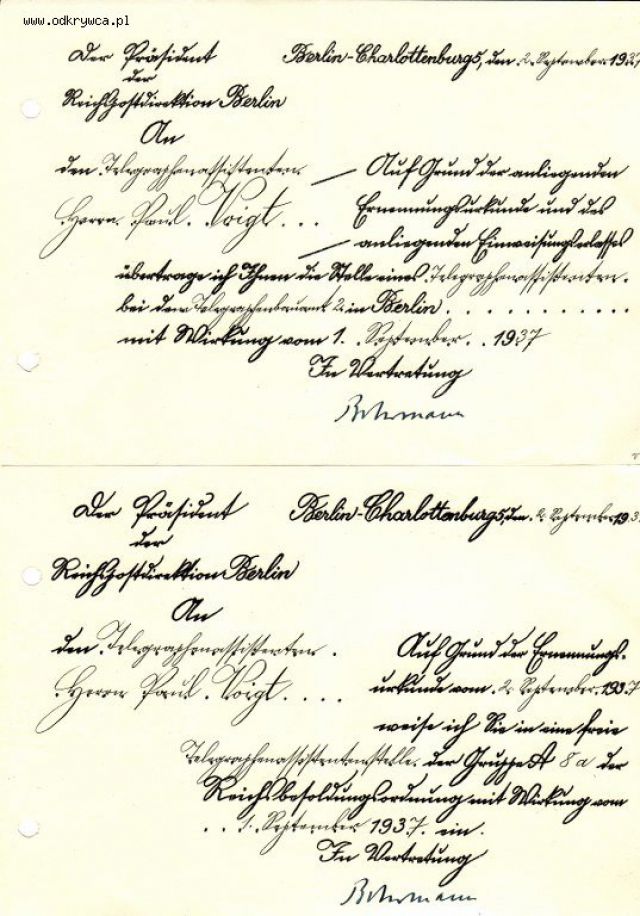 www.odkrywca.pl
Der Präsident
Berlin-Charlottenburg 5, den 2. September 1937
der
Reichspostdirektion Berlin
An
den Telegraphenassistenten
Auf Grund der anliegenden
Herrn Paul Voigt . . .
Ernennungsurkunde und des
anliegenden Einweisungserlasses
übertrage ich Ihnen die Stelle eines Telegraphenassistenten
bei dem Telegraphenbauamt 2 in Berlin . . . . . . . . . . .
mit Wirkung vom 1. September . . 1937
In Vertretung
Der Präsident
Berlin-Charlottenburg 5, den 2. September 193
der
Reichspostdirektion Berlin
An
den Telegraphenassistenten .
Auf Grund der Ernennungs-
Herrn Paul Voigt . . . .
urkunde vom 2. September 1937
weise ich Sie in eine freie
Telegraphenassistentenstelle der Gruppe A 8 a der
Reichsbesoldungsordnung mit Wirkung vom
. . 1. September 1937 ein.
In Vertretung